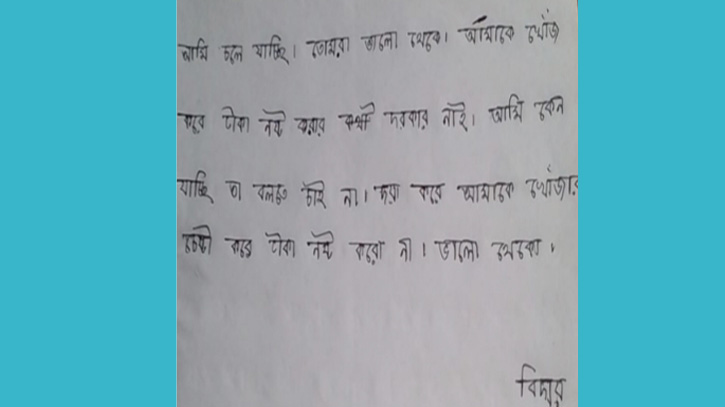 আমি চলে যাচ্ছি। তোমরা ভালো থেকো। আমাকে খোঁজ
করে টাকা নষ্ট করার কোন দরকার নাই। আমি কেন
যাচ্ছি তা বলতে চাই না। দয়া করে আমাকে খোঁজার
চেষ্টা করে টাকা নষ্ট করো না। ভালো থেকো।
বিদায়